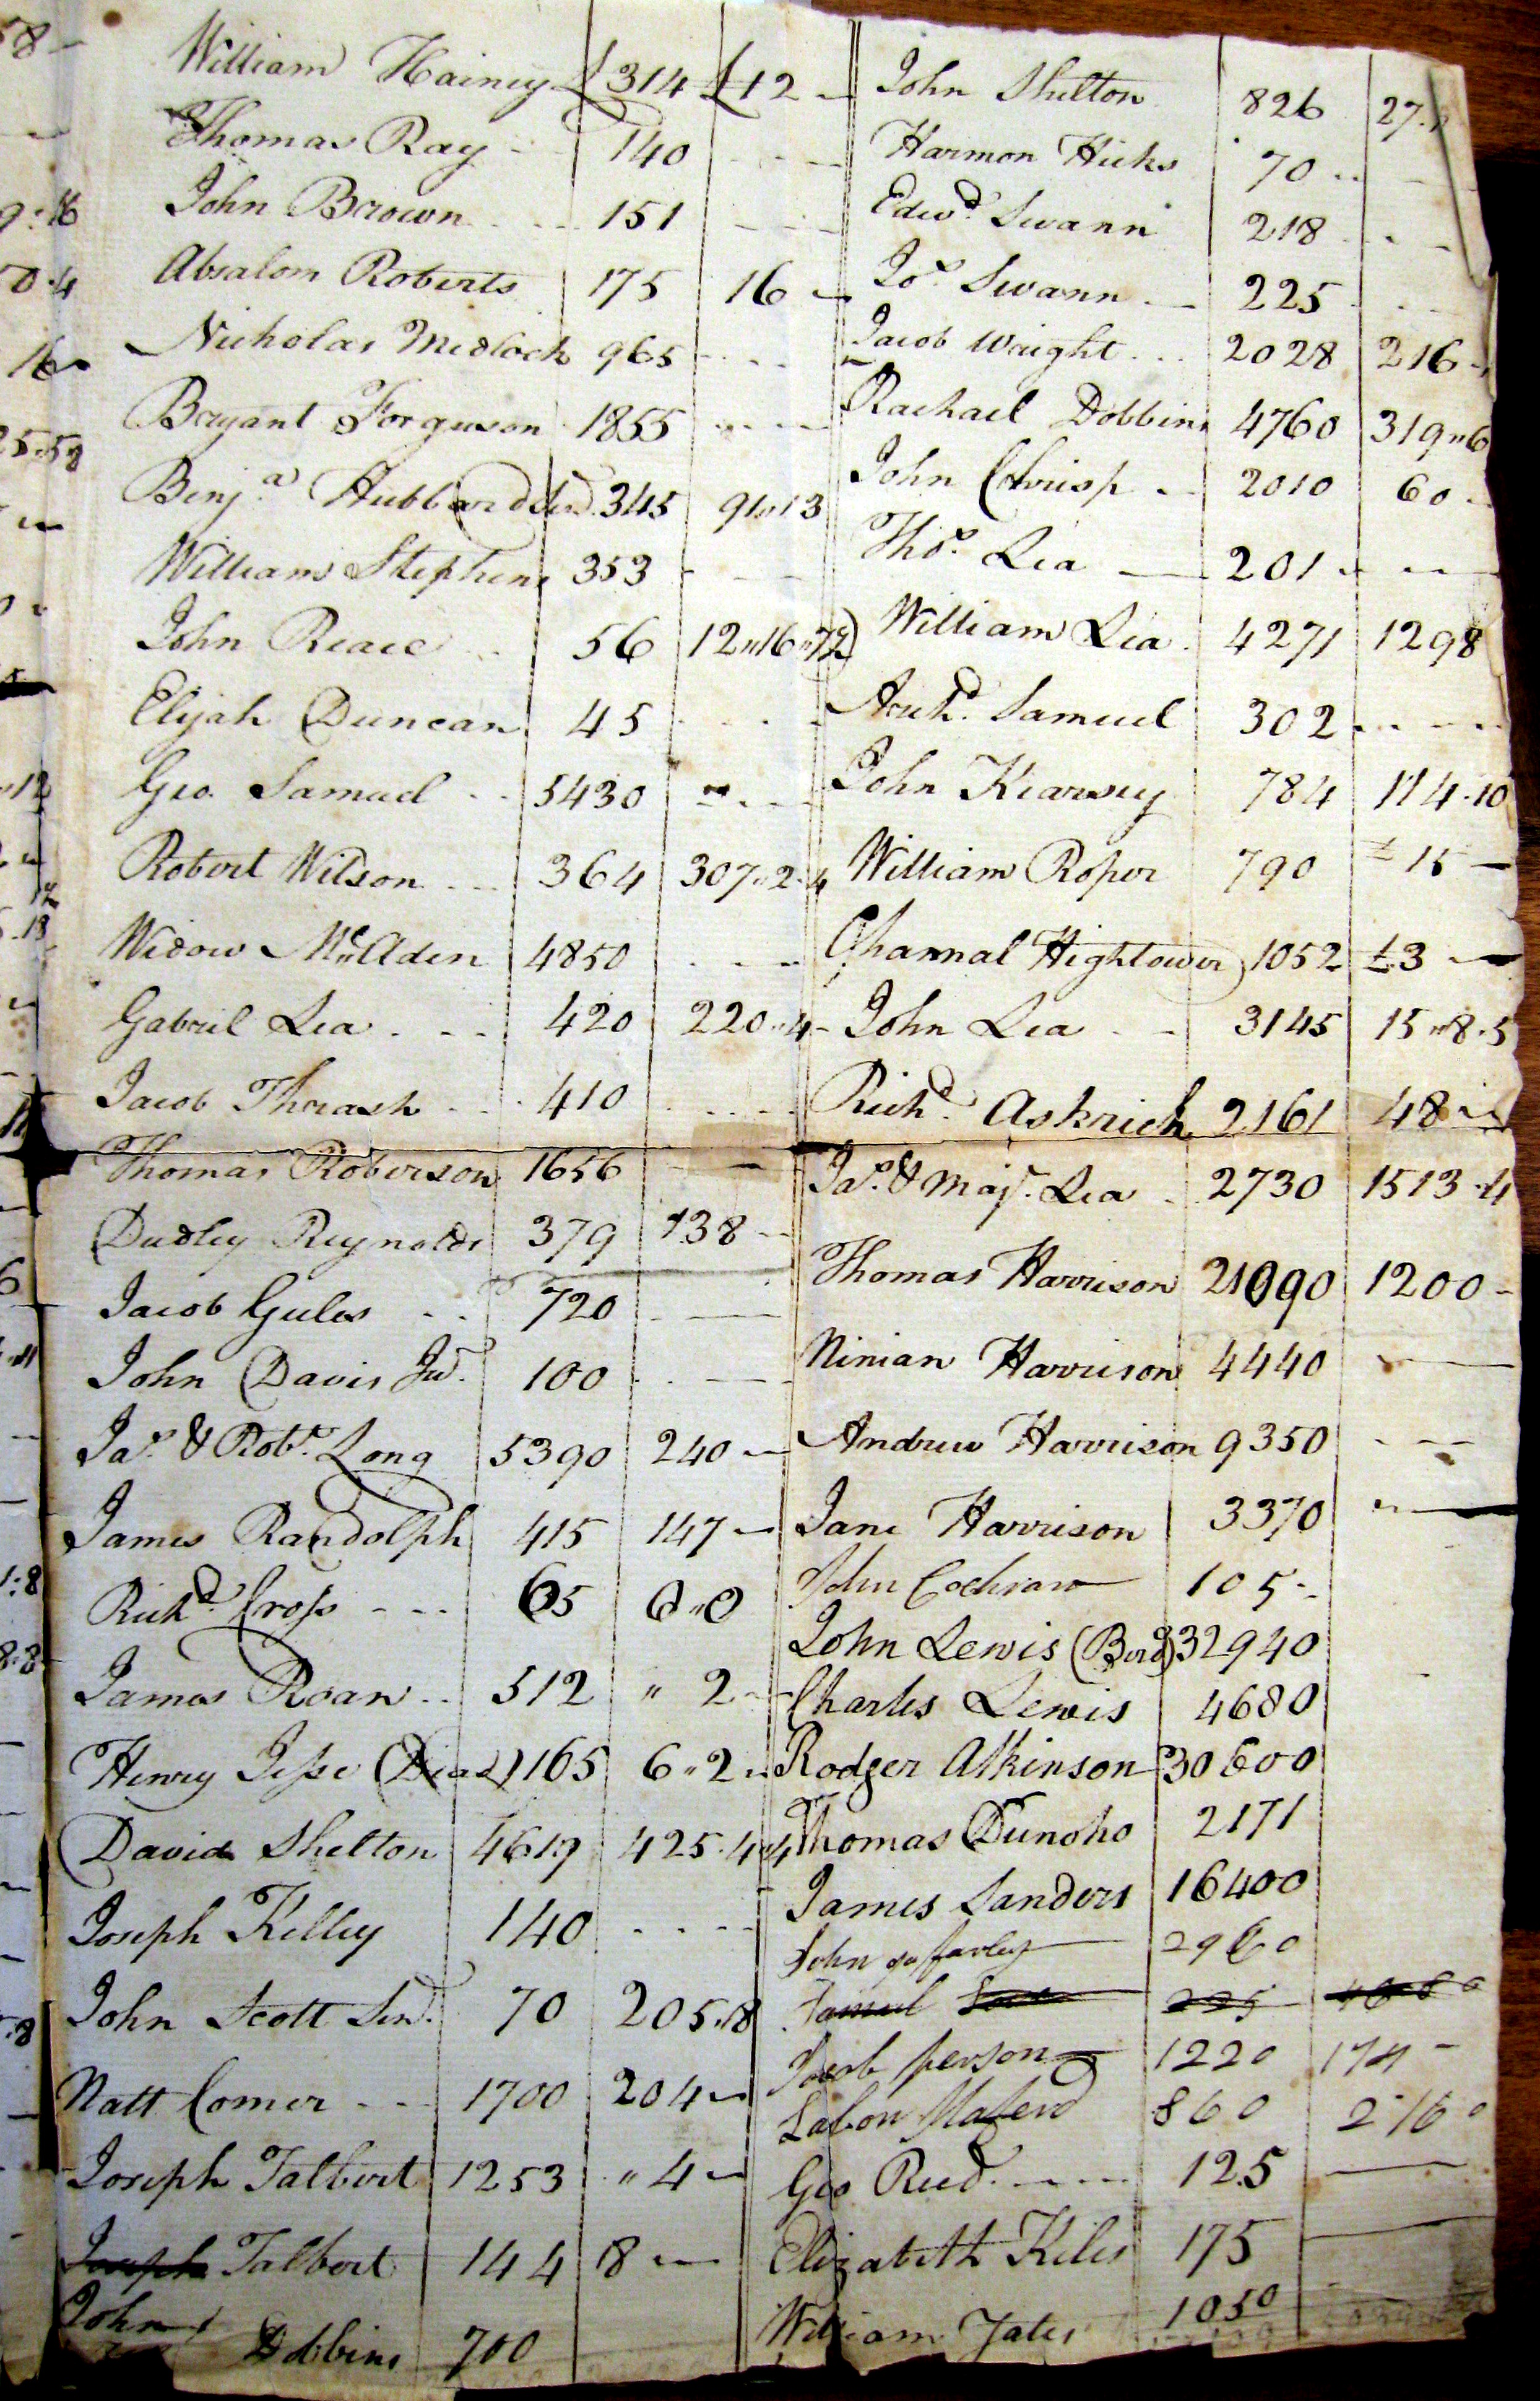 William Hainey £314 £12 —
Thomas Ray 140
John Brown 151
Absalom Roberts 175 16 —
Nicholas Medlock 965
Bryant Forguson 1855
Benj.a Hubbard Sen. 345 91"13
William Stephens 353
John Reace 56 12"16"7½
Elijah Duncan 45
Geo. Samuel 5430
Robert Wilson 364 307"2"4
Widow McAden 4850
Gabriel Lea 420 220"4
Jacob Thrash 410
Thomas Roberson 1656 —
Dudley Reynolds 379 138
Jacob Gules 720
John Davis Jur. 100
Jas. & Robt. Long 5390 240 —
James Randolph 415 147 —
Richd. Cross 65 6"0
James Roan 512 " 2 —
Henry Jesse (Dead) 165 6"2
David Shelton 4619 425"4"4
Joseph Kelley 140
John Scott Senr. 70 205"18
Natt Comer 1700 204 —
Joseph Talbert 1253 " 4 —
Joseph Talbert 144 18 —
John
Dobbins 700
John Shelton 826 27
Harmon Hicks 70
Edwd. Swann 218
Jos. Swann 225
Jacob Wright 2028 216
Rachael Dobbins 4760 319"6
John Chrisp 2010 60
Thos. Lea 201
William Lea 4271 1298
Archd. Samuel 302
John Kearsey 784 114.10
William Roper 790 £ 15 —
Channal Hightower 1052 £3 —
John Lea 3145 15"8.5
Richd. Askrich 2161 48
Jas. & Maj. Lea 2730 1513.4
Thomas Harrison 21090 1200
Ninian Harrison 4440
Andrew Harrison 9350
Jane Harrison 3370
John Cochran 105
John Lewis (Bird) 32940
Charles Lewis 4680
Rodger Atkinson 30600
Thomas Dunoho 2171
James Sanders 16400
John 2960
Samuel 225
Jacob person 1220 174 —
Labon 860 216
Geo Reed 125
Elizabeth Kiles 175
William Yates 1050